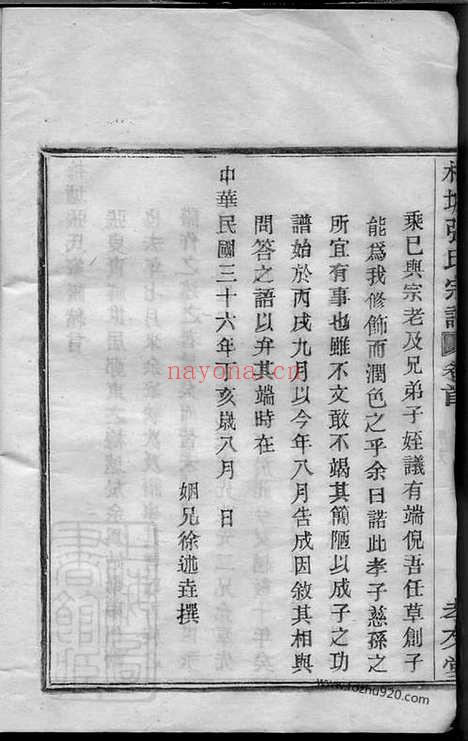 張氏宗譜 卷首
乘已與宗老及兄弟子姪議有端倪吾任草創子
能爲我修飾而潤色之乎余曰諾此孝子慈孫之
所宜有事也雖不文敢不竭其簡陋以成子之功
譜始於丙戌九月以今年八月告成因敘其相與
問答之語以弁其端時在
中華民國三十六年丁亥歲八月 日
姻兄徐述垚撰
nayona.cn
www.rozhu920.com